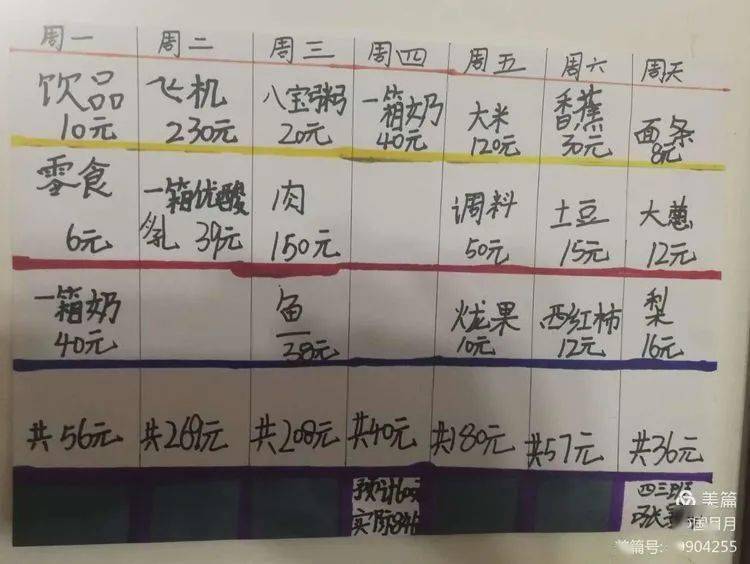 周一 周二 周三 周四 周五 周六 周天
饮品 飞机 八宝粥 一箱奶 大米 香蕉 面条
10元 230元 20元 40元 120元 30元 8元
零食 一箱优酸 肉 调料 土豆 大葱
6元 乳 39元 150元 50元 15元 12元
一箱奶 鱼 火龙果 西红柿 梨
40元 38元 10元 12元 16元
共56元 共269元 共208元 共40元 共180元 共57元 共36元
预计60元 四三班
实际846 张
美篇
月
美篇号: 904255